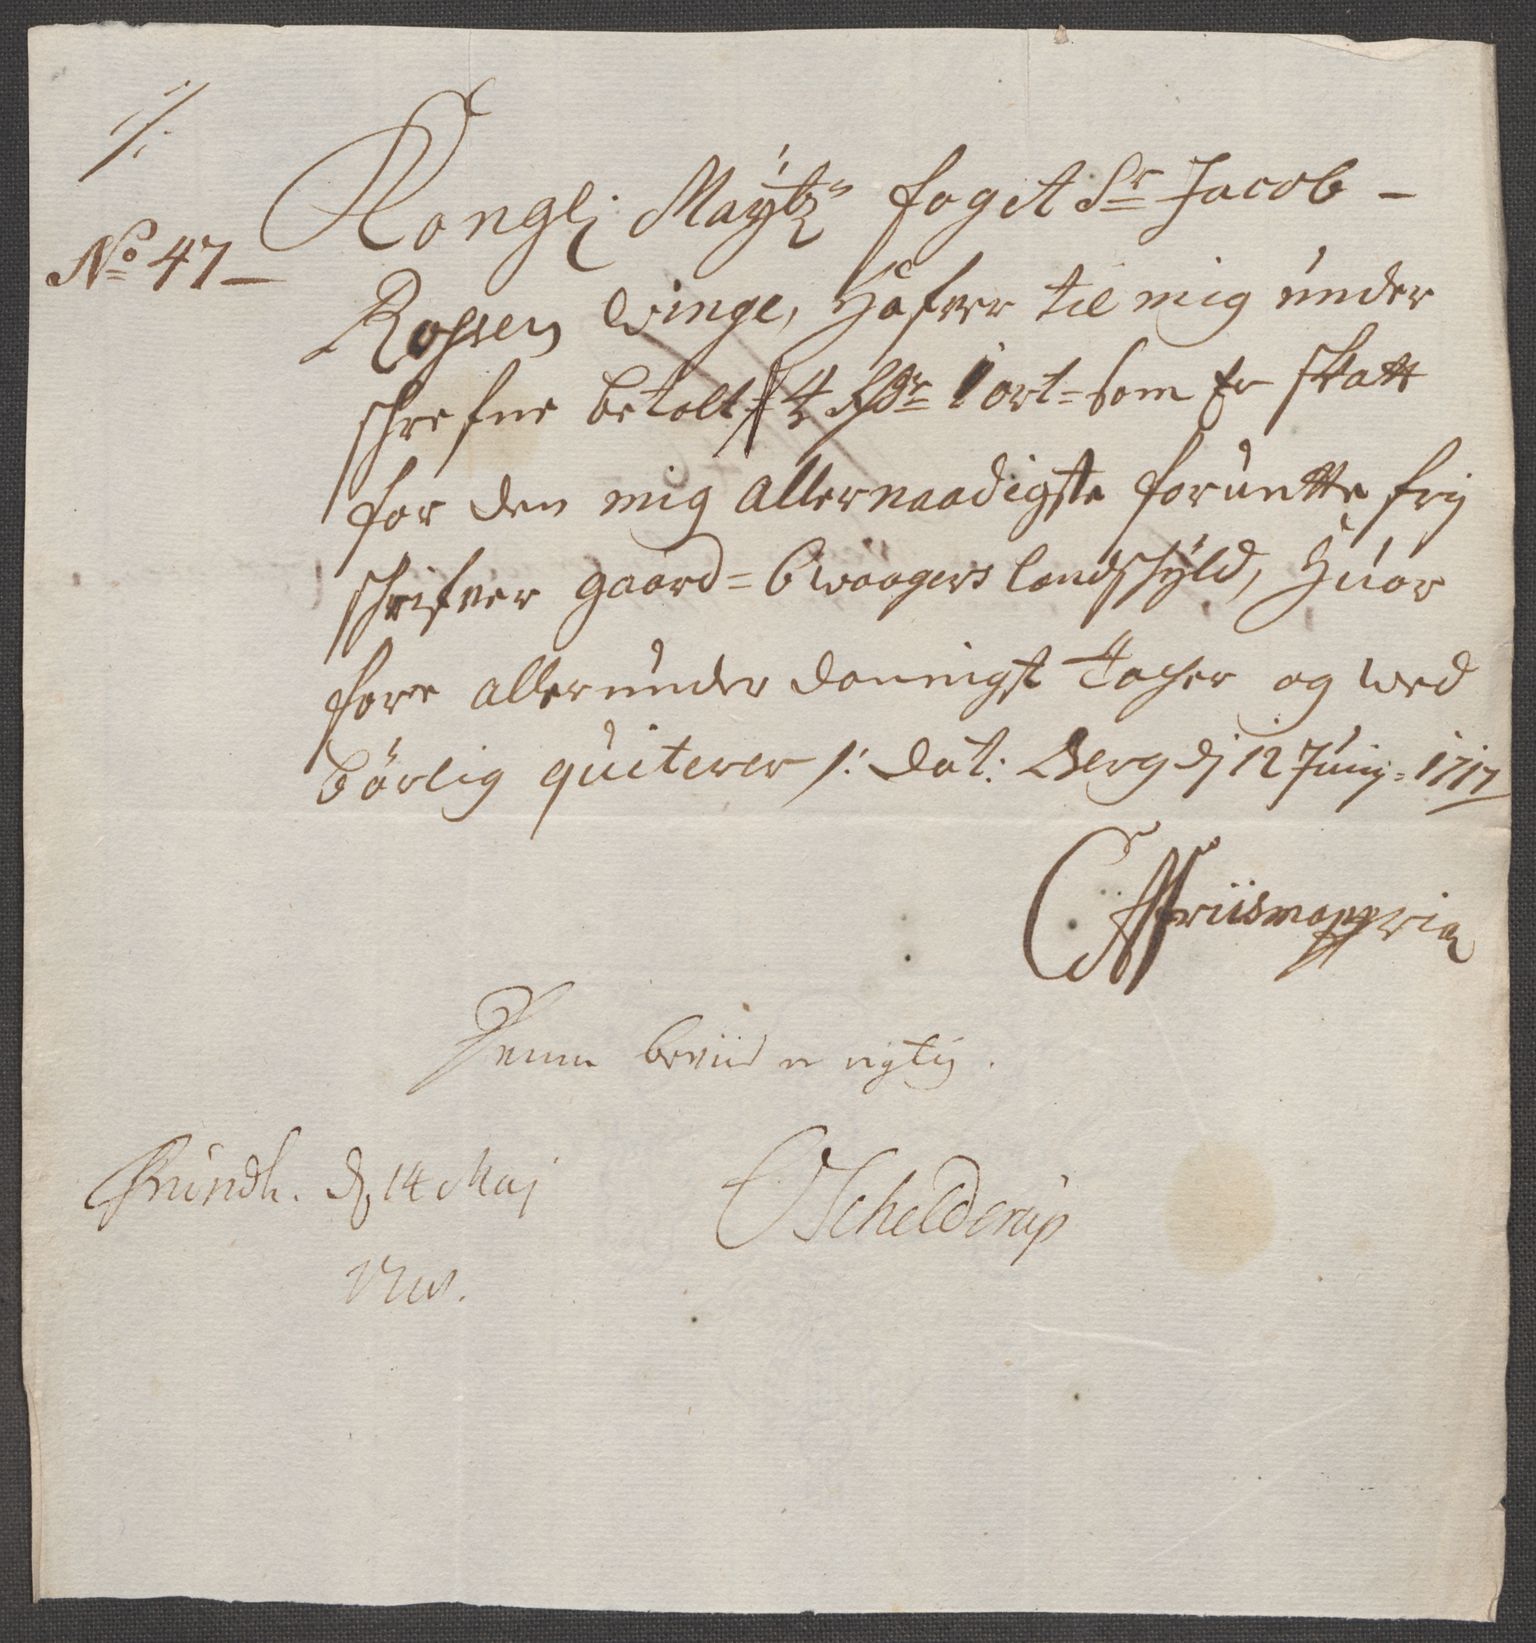 No 47 –
Kongl: Maÿtz foget Sr Jacob –
Rohsen Winge, Hafver til mig under
schrefne betalt = 4 Rdr 1 ort = som Er skatt
for den mig allernaadigste foruntte frij
schrifver gaard = 6 waagers landschÿld, Huor
fore allerunder danningst tacher og wed
børlig quiterer /: dat: Berg dj 12 Junij = 1717
CAFriis mappria
Denne beviis er rigtig.
Trundh. d. 14 Maj
OSchelderup
1718.